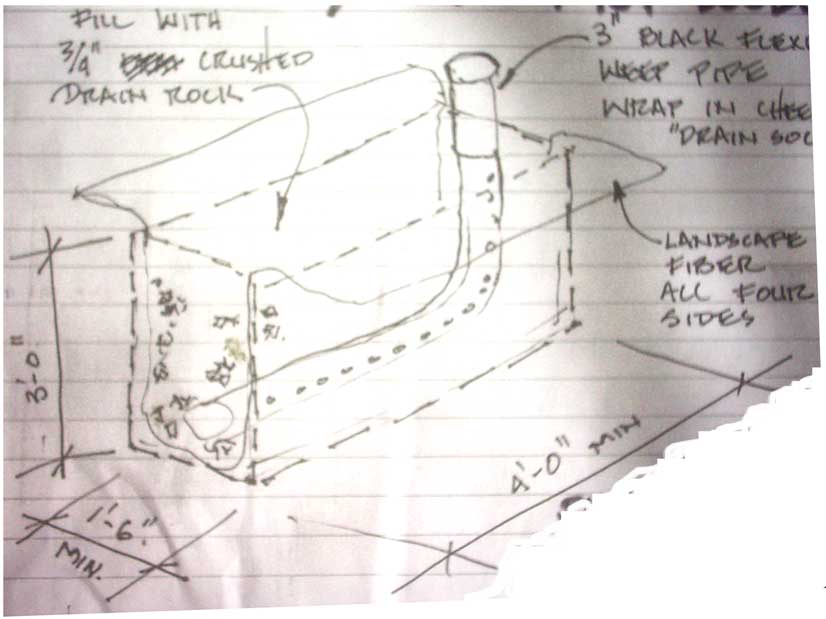 FILL WITH
3/4" CRUSHED
DRAIN ROCK
3" BLACK FLEXI
WEEP PIPE
WRAP IN CHEE
"DRAIN SOC
LANDSCAPE
FIBER
ALL FOUR
SIDES
3'-0"
1'-6"
MIN.
4'-0" MIN